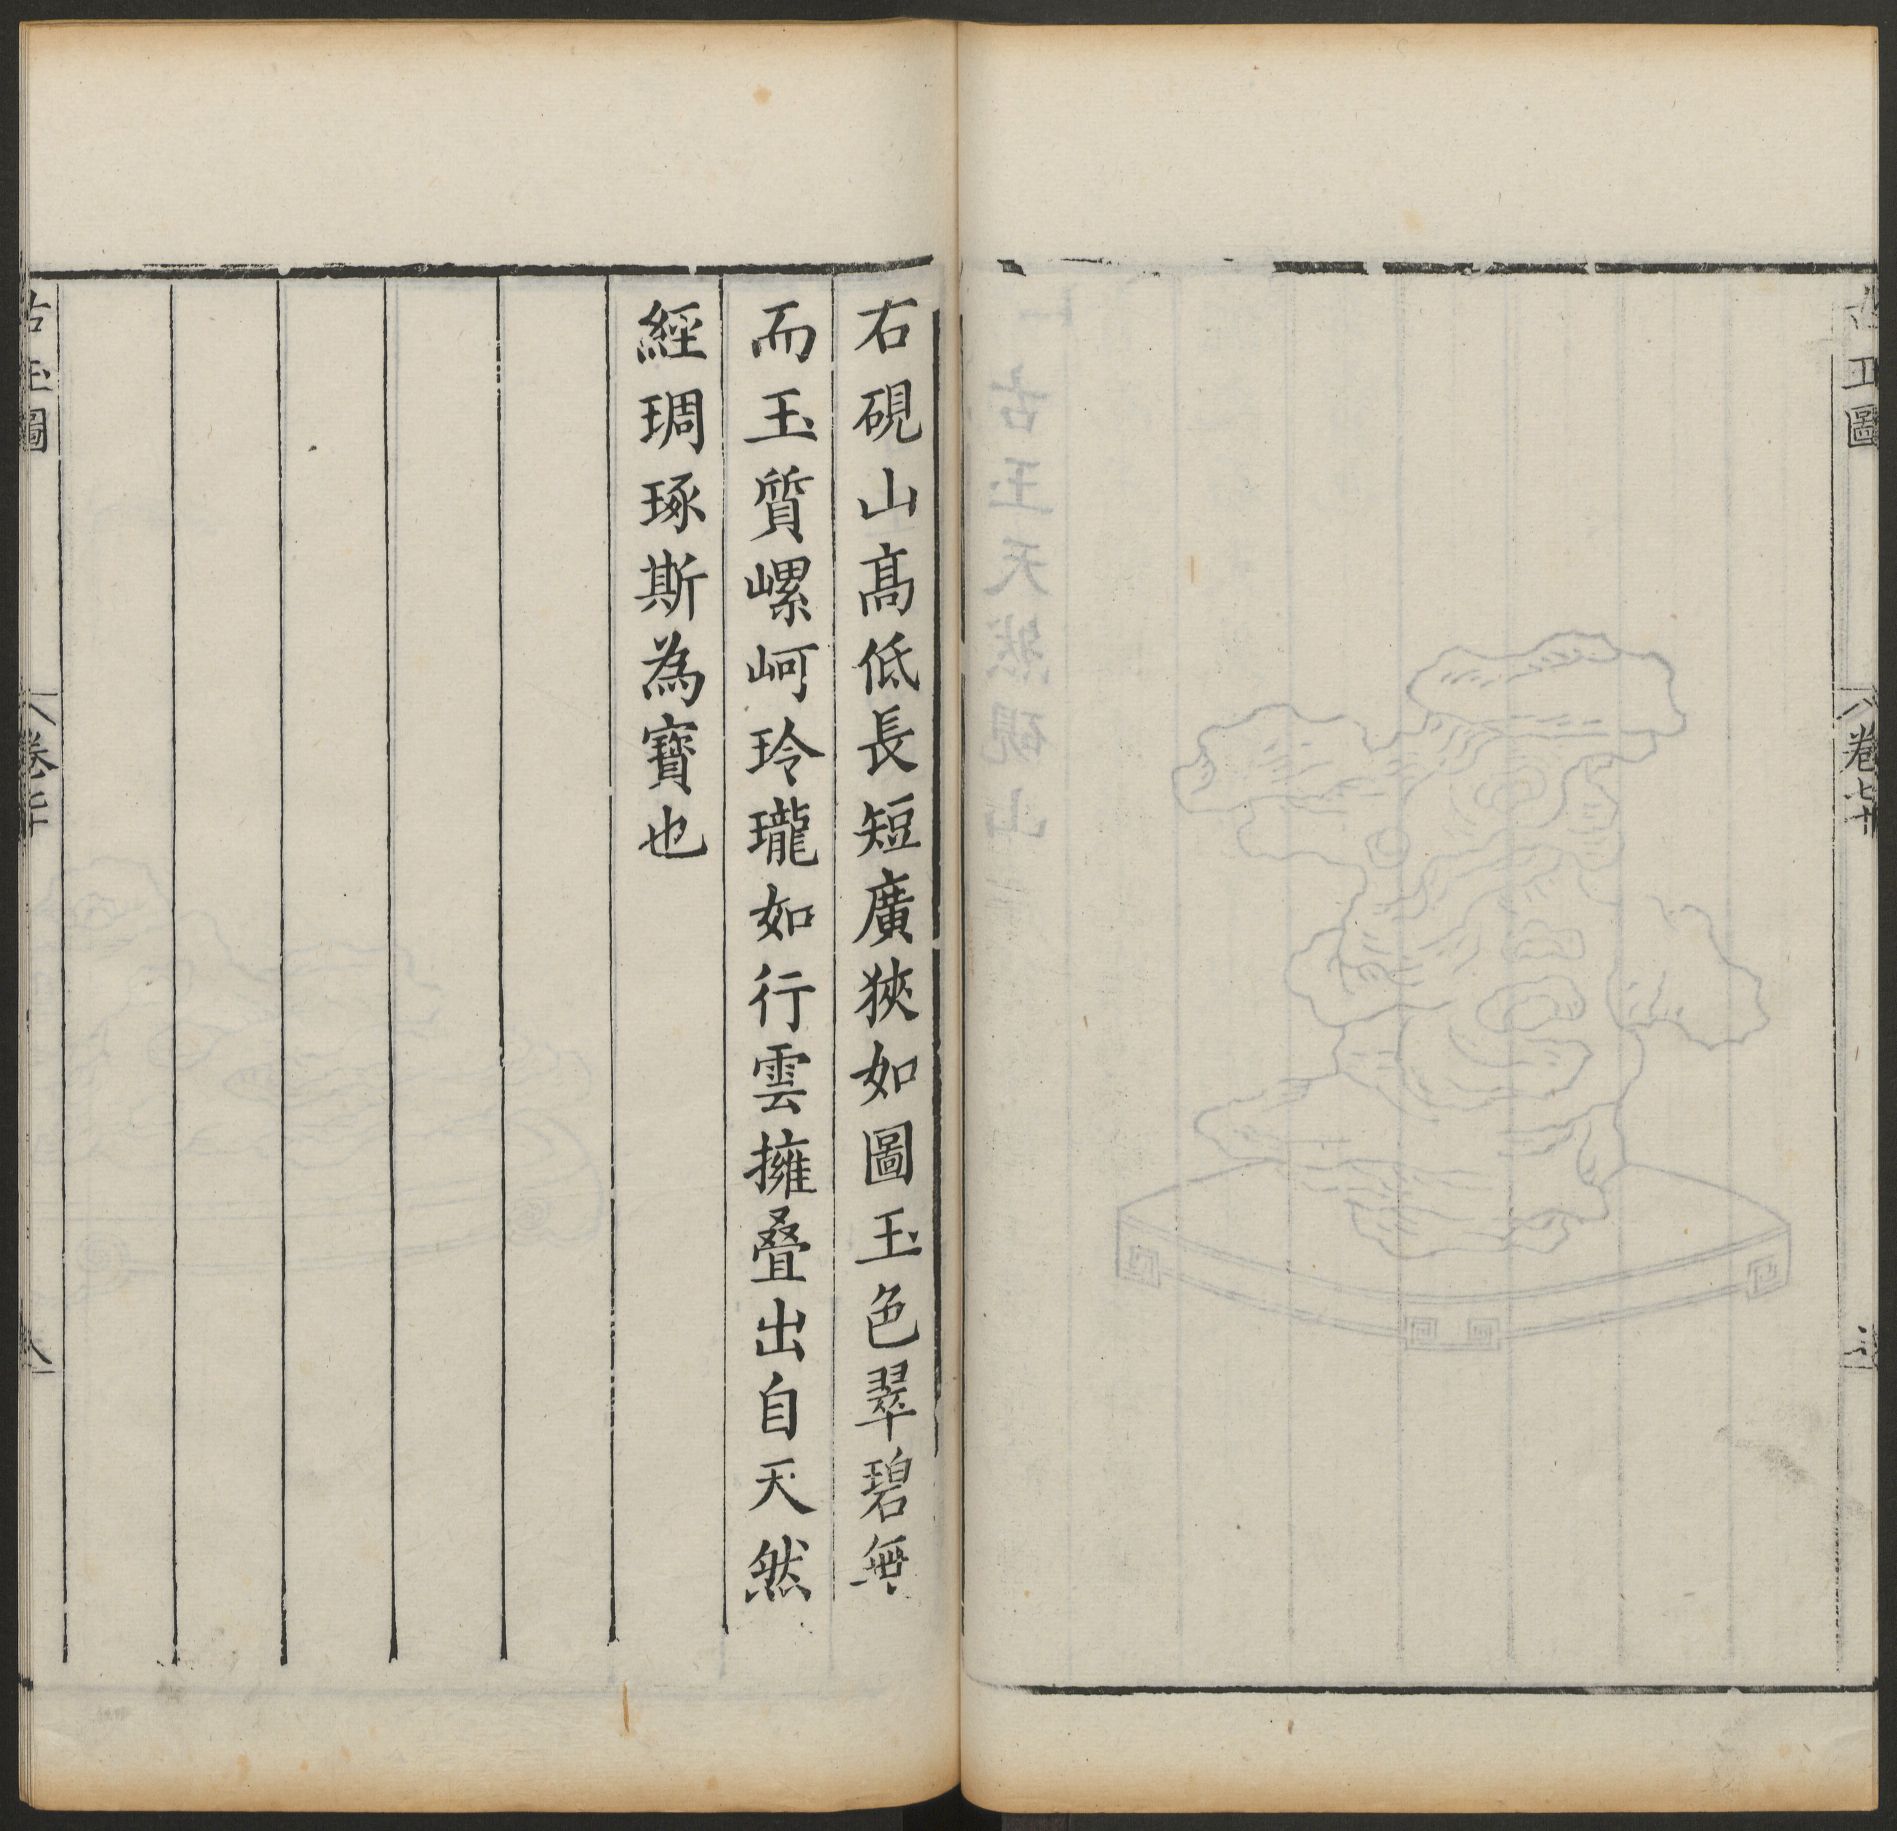 古玉圖
卷七十
右硯山高低長短廣狹如圖玉色翠碧無
而玉質嵺岢玲瓏如行雲擁疊出自天然
經琱琢斯為寶也
古玉圖